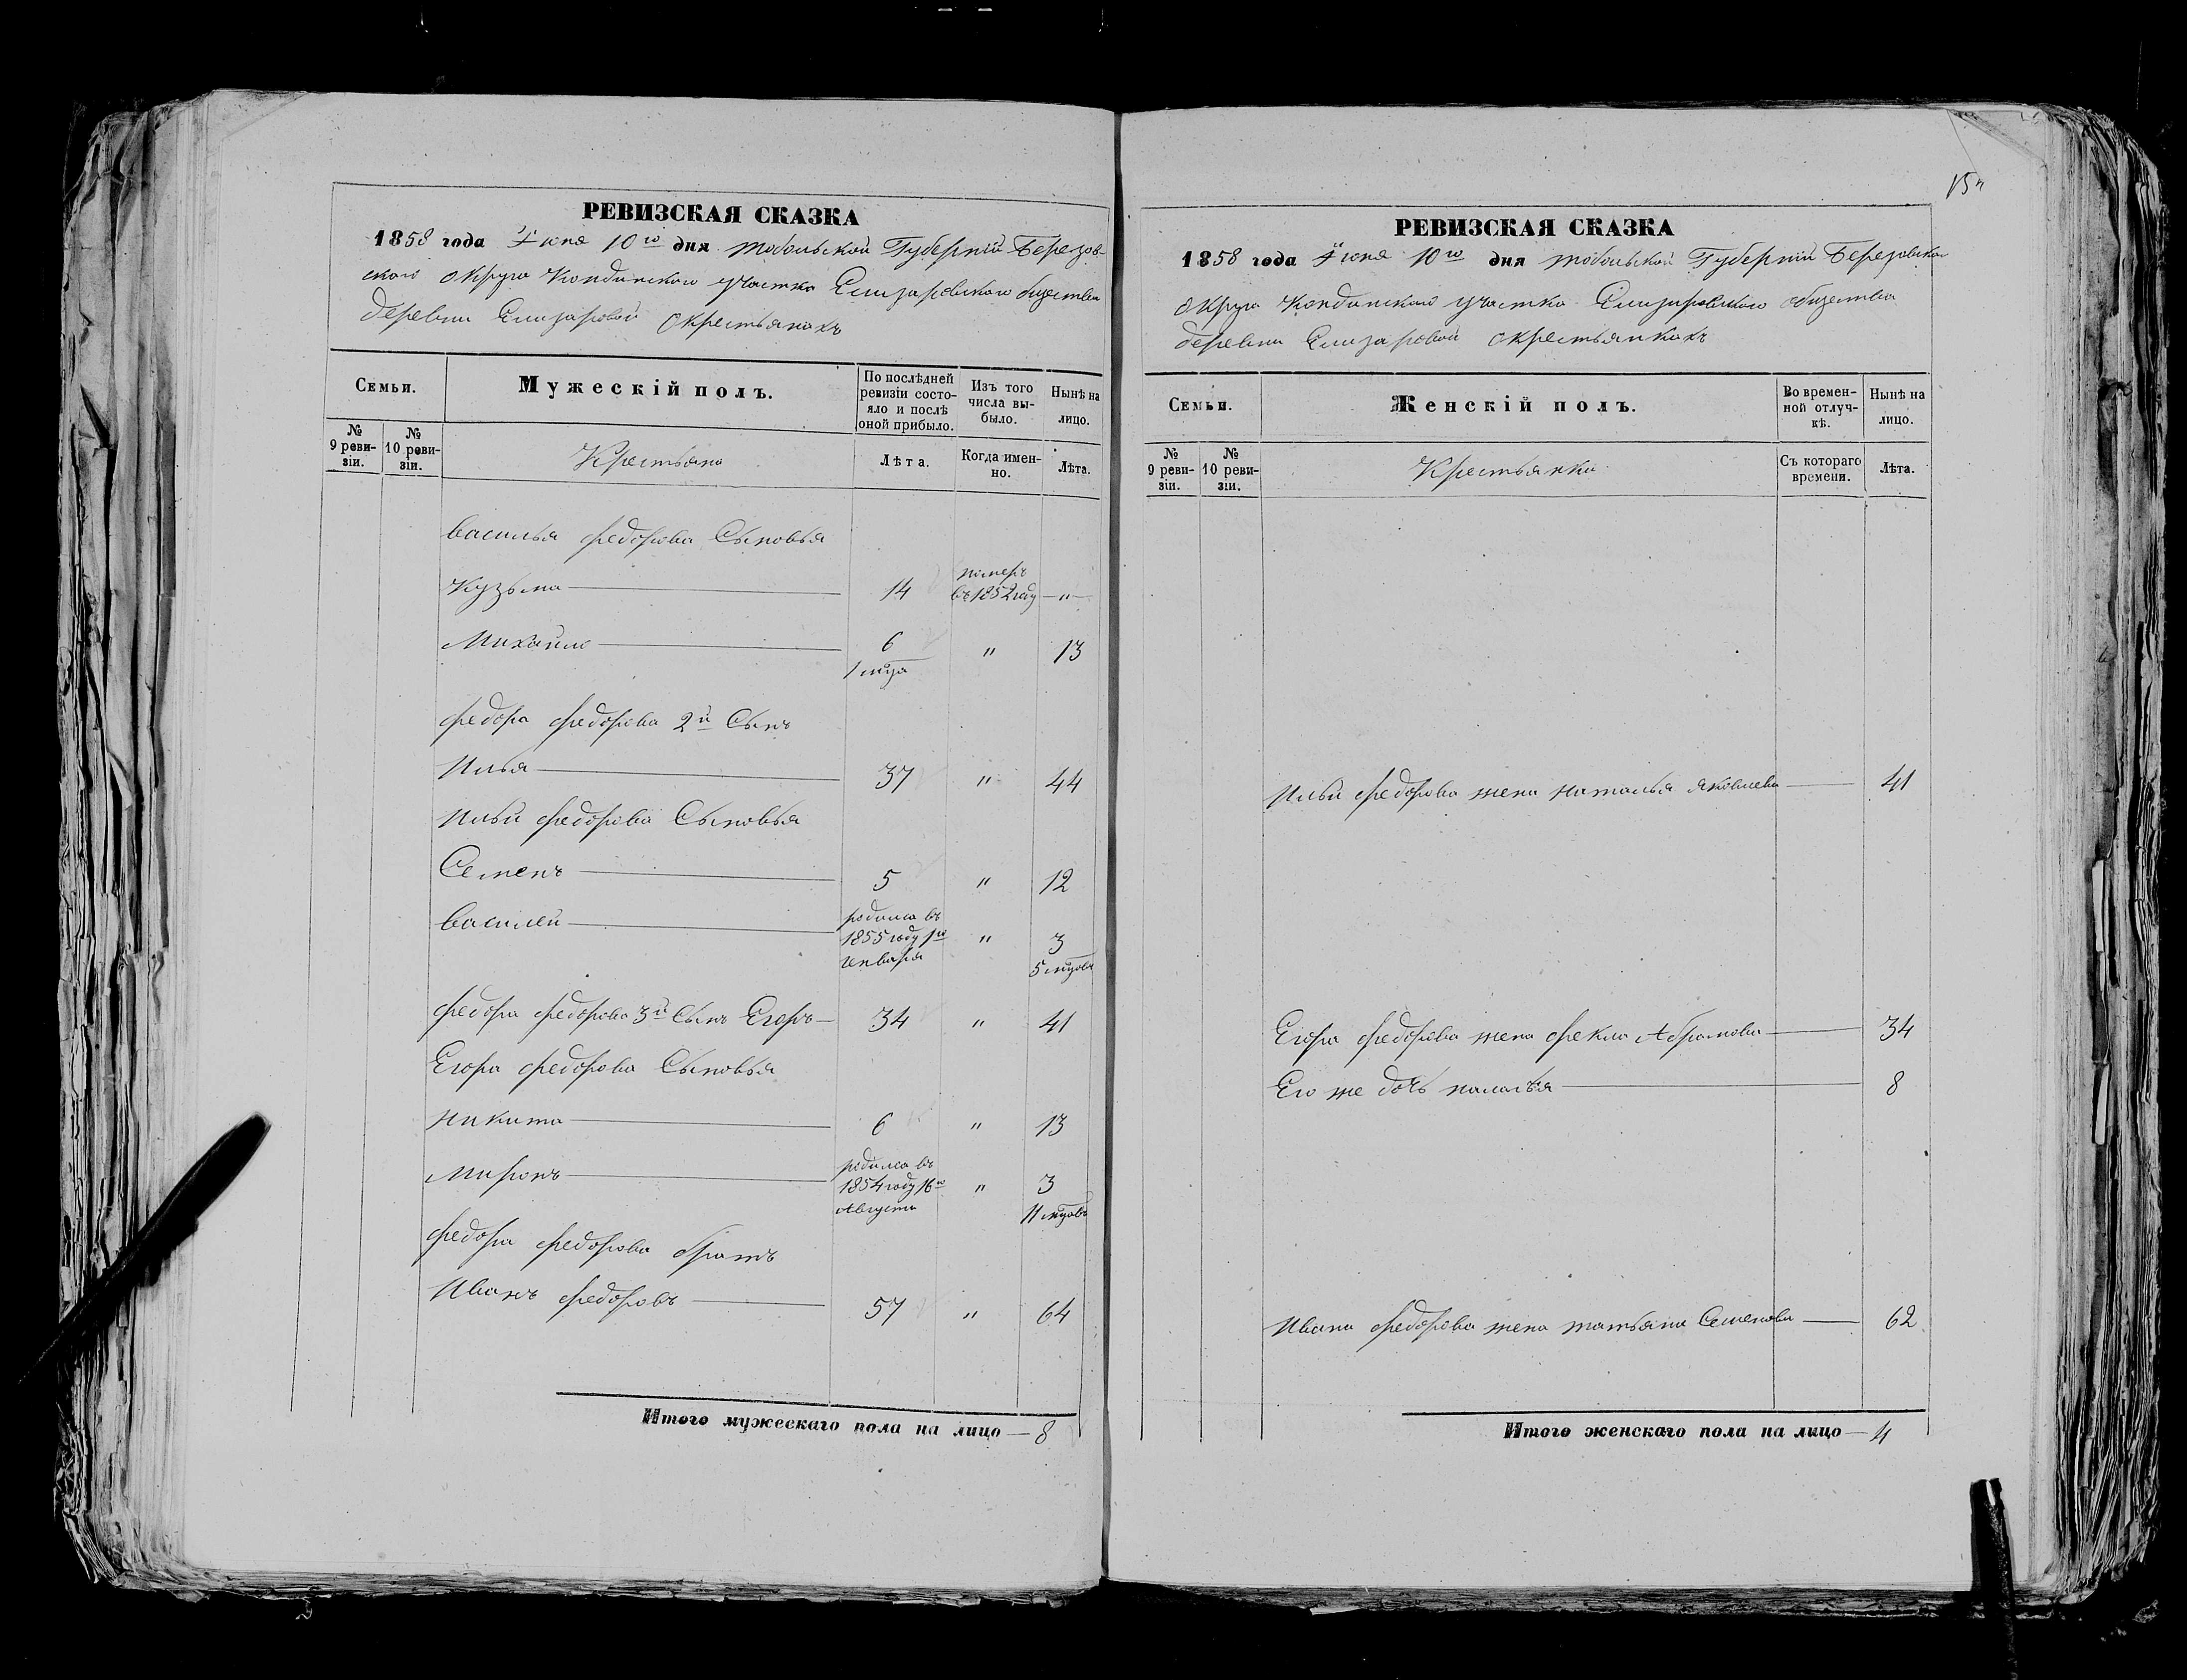 РЕВИЗСКАЯ СКАЗКА
1858 года Іюня 10го дня Тобольской Губерніи Березов-
скаго округа Кондинскаго участка Елизаровскаго общества
деревни Елизаровой о крестьянахъ
Семьи.
Мужескій полъ.
По послѣдней ревизіи состо-
яло и послѣ
оной прибыло.
Изъ того
числа вы-
было.
Нынѣ на
лицо.
№
9 реви-
зіи.
№
10 реви-
зіи.
Крестьяна
Лѣта.
Когда имен-
но.
Лѣта.
Василья Федорова Сыновья
Кузьма 14 померъ въ 1852 году "
Михайло 6 1 мца " 13
Федора Федорова 2й Сынъ
Илья 37 " 44
Ильи Федорова Сыновья
Семенъ 5 " 12
Василей родился въ 1855 году 1го Генваря " 3 5 мцовъ
Федора Федорова 3й Сынъ Егоръ 34 " 41
Егора Федорова Сыновья
Никита 6 " 13
Миронъ родился въ 1854 году 16го Августа " 3 11 мцовъ
Федора Федорова братъ
Иванъ Федоровъ 57 " 64
Итого мужескаго пола на лицо 8
РЕВИЗСКАЯ СКАЗКА
1858 года Іюня 10го дня Тобольской Губерніи Березовскаго
округа Кондинскаго участка Елизаровскаго общества
деревни Елизаровой о крестьянкахъ
Семьи.
Женскій полъ.
Во времен-
ной отлуч-
кѣ.
Нынѣ на
лицо.
№
9 реви-
зіи.
№
10 реви-
зіи.
Крестьянки
Съ котораго
времени.
Лѣта.
Ильи Федорова жена Наталья Яковлева 41
Егора Федорова жена Фекла Абрамова 34
Его же дочь Палагья 8
Ивана Федорова жена Татьяна Семенова 62
Итого женскаго пола на лицо 4